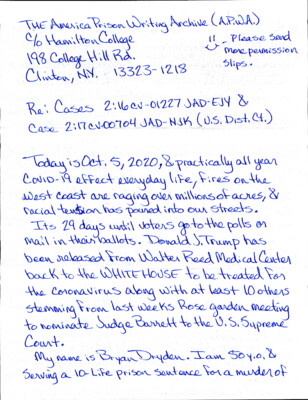 THE America Prison Writing Archive (A.P.W.A.)
c/o Hamilton College
198 College Hill Rd.
Clinton, N.Y. 13323-1218
- Please send
more permission
slips.
Re: Cases 2:16cv-01227 JAD-EJY &
Case 2:17cv-00704 JAD-NJK (U.S. Dist. Ct.)
Today is Oct. 5, 2020, & practically all year
Covid-19 effect everyday life, fires on the
west coast are raging over millions of acres, &
racial tension has poured into our streets.
Its 29 days until voters go to the polls or
mail in their ballots. Donald J. Trump has
been released from Walter Reed Medical Center
back to the WHITE HOUSE to be treated for
the coronavirus along with at least 10 others
stemming from last weeks Rose garden meeting
to nominate Judge Barrett to the U.S. Supreme
Court.
My name is Bryan Dryden. I am 50 y.o. &
serving a 10-Life prison sentence for a murder of